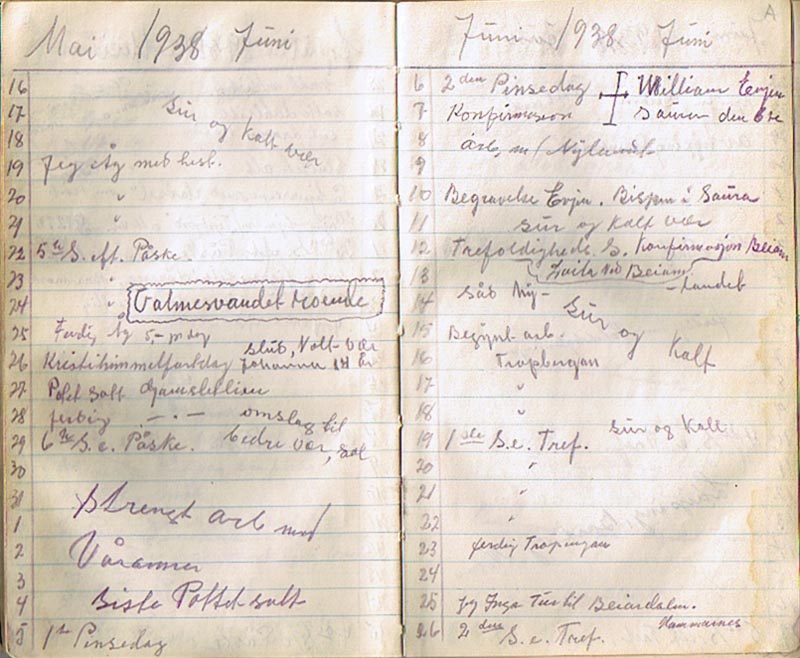 Mai 1938 Juni
16
17 Sur og Kalt vær
18
19 Jeg åg med hest.
20 "
21 "
22 5te S. eft. Påske
23 "
24 " Valmesvandet roende
25 Ferdig åg 5-
26 Kristihimmelfartsdag slud, Vått vær Johanna 14 år
27 Potet satt
28 ferdig — " — omslag til
29 6te S. e. Påske. bedre vær, sol
30
31 Strengt arb med
1
2 Våranna
3
4 siste Pottet satt
5 1ste Pinsedag
Juni 1938 Juni
A
6 2den Pinsedag William Evjen
7 Konfirmasion Saura den 6te
8 arb, m/ Nylandet
9
10 Begravelse Evjen. Bispen i Saura
11 Sur og Kalt vær
12 Trefoldigheds. S. Konfirmasjon Beiarn
13 Ved Beiarn
14 Såd Ny- -landet
15 Begynt arb. Sur og Kalt
16
17 "
18 "
19 1ste S.e. Tref. Sur og Kalt
20 "
21 "
22 "
23 ferdig
24
25 Jeg Inga Tur til Beiardalen.
26 2den S.e. Tref. Hammernes